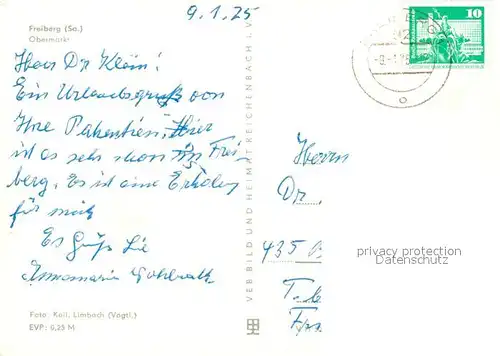 9.1.75
Freiberg (Sa.)
Obermarkt
Herr Dr Klein!
Ein Urlaubsgruß von
Ihre Patientien, Hier
ist es sehr schön in Frei
berg. Es ist eine Erholung
für mich
Es Grüße Sie
Annemarie
Foto: Kall, Limbach (Vogtl.)
EVP: 0,25 M
VEB BILD UND HEIMAT REICHENBACH I. V.
10
Herrn
Dr.
435
privacy protection
Datenschutz